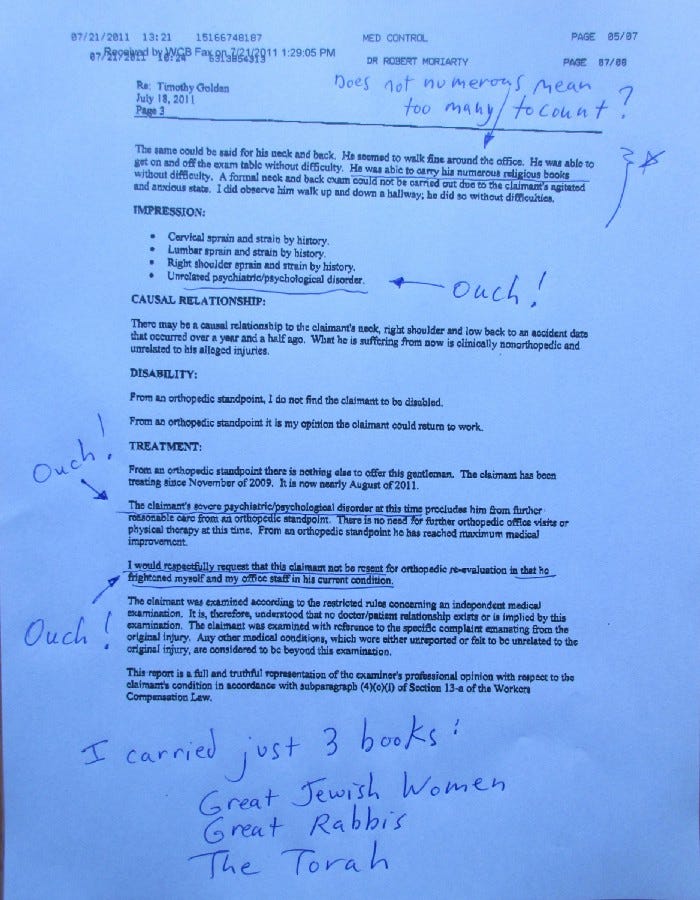 07/21/2011 13:21 15166748187 MED CONTROL PAGE 05/07
Received by WCB Fax on 7/21/2011 1:29:05 PM
07/21/2011 DR ROBERT MORIARTY PAGE 07/08
Re: Timothy Golden
July 18, 2011
Page 3
Does not numerous mean
too many/to count?
The same could be said for his neck and back. He seemed to walk fine around the office. He was able to
get on and off the exam table without difficulty. He was able to carry his numerous religious books
without difficulty. A formal neck and back exam could not be carried out due to the claimant's agitated
and anxious state. I did observe him walk up and down a hallway; he did so without difficulties.
IMPRESSION:
• Cervical sprain and strain by history.
• Lumbar sprain and strain by history.
• Right shoulder sprain and strain by history.
• Unrelated psychiatric/psychological disorder.
Ouch!
CAUSAL RELATIONSHIP:
There may be a causal relationship to the claimant's neck, right shoulder and low back to an accident date
that occurred over a year and a half ago. What he is suffering from now is clinically nonorthopedic and
unrelated to his alleged injuries.
DISABILITY:
From an orthopedic standpoint, I do not find the claimant to be disabled.
From an orthopedic standpoint it is my opinion the claimant could return to work.
TREATMENT:
Ouch!
From an orthopedic standpoint there is nothing else to offer this gentleman. The claimant has been
treating since November of 2009. It is now nearly August of 2011.
The claimant's severe psychiatric/psychological disorder at this time precludes him from further
reasonable care from an orthopedic standpoint. There is no need for further orthopedic office visits or
physical therapy at this time. From an orthopedic standpoint he has reached maximum medical
improvement.
I would respectfully request that this claimant not be resent for orthopedic re-evaluation in that he
frightened myself and my office staff in his current condition.
Ouch!
The claimant was examined according to the restricted rules concerning an independent medical
examination. It is, therefore, understood that no doctor/patient relationship exists or is implied by this
examination. The claimant was examined with reference to the specific complaint emanating from the
original injury. Any other medical conditions, which were either unreported or felt to be unrelated to the
original injury, are considered to be beyond this examination.
This report is a full and truthful representation of the examiner's professional opinion with respect to the
claimant's condition in accordance with subparagraph (4)(c)(i) of Section 13-a of the Workers
Compensation Law.
I carried just 3 books:
Great Jewish Women
Great Rabbis
The Torah